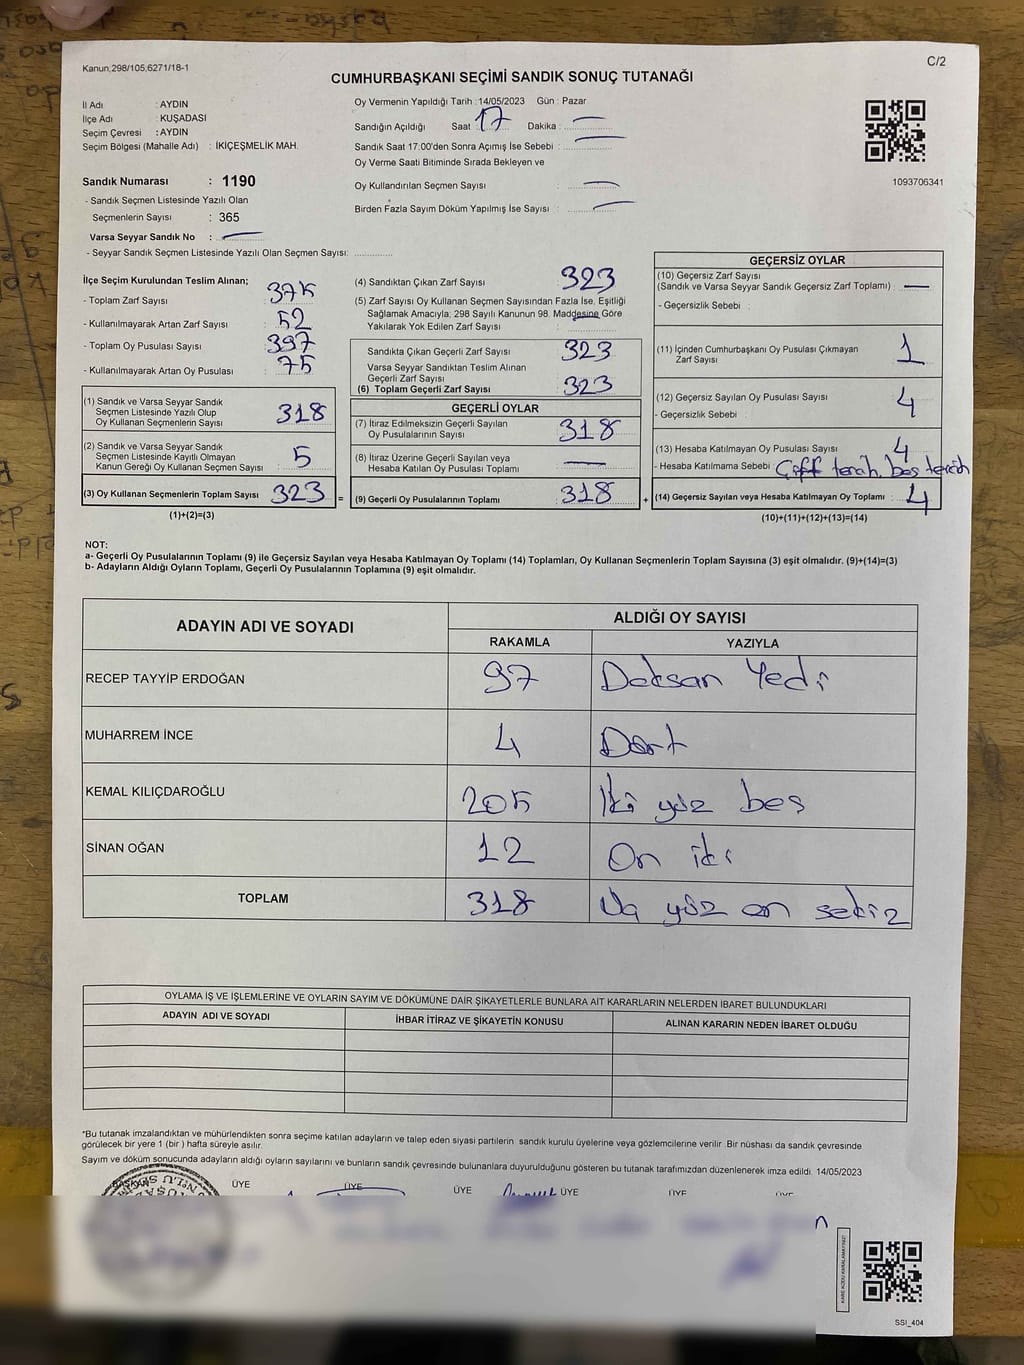 Kanun,298/105,6271/18-1
C/2
CUMHURBAŞKANI SEÇİMİ SANDIK SONUÇ TUTANAĞI
İl Adı : AYDIN
İlçe Adı : KUŞADASI
Seçim Çevresi : AYDIN
Seçim Bölgesi (Mahalle Adı) : İKİÇEŞMELİK MAH.
Oy Vermenin Yapıldığı Tarih : 14/05/2023 Gün : Pazar
Sandığın Açıldığı Saat 17 Dakika : —
Sandık Saat 17:00'den Sonra Açımış İse Sebebi : —
Oy Verme Saati Bitiminde Sırada Bekleyen ve
Oy Kullandırılan Seçmen Sayısı : —
Birden Fazla Sayım Döküm Yapılmış İse Sayısı : —
1093706341
Sandık Numarası : 1190
- Sandık Seçmen Listesinde Yazılı Olan
Seçmenlerin Sayısı : 365
Varsa Seyyar Sandık No : —
- Seyyar Sandık Seçmen Listesinde Yazılı Olan Seçmen Sayısı:
İlçe Seçim Kurulundan Teslim Alınan;
- Toplam Zarf Sayısı : 375
- Kullanılmayarak Artan Zarf Sayısı : 52
- Toplam Oy Pusulası Sayısı : 397
- Kullanılmayarak Artan Oy Pusulası : 75
(1) Sandık ve Varsa Seyyar Sandık
Seçmen Listesinde Yazılı Olup
Oy Kullanan Seçmenlerin Sayısı : 318
(2) Sandık ve Varsa Seyyar Sandık
Seçmen Listesinde Kayıtlı Olmayan
Kanun Gereği Oy Kullanan Seçmen Sayısı : 5
(3) Oy Kullanan Seçmenlerin Toplam Sayısı : 323 =
(1)+(2)=(3)
(4) Sandıktan Çıkan Zarf Sayısı : 323
(5) Zarf Sayısı Oy Kullanan Seçmen Sayısından Fazla İse, Eşitliği
Sağlamak Amacıyla; 298 Sayılı Kanunun 98. Maddesine Göre
Yakılarak Yok Edilen Zarf Sayısı : —
Sandıkta Çıkan Geçerli Zarf Sayısı : 323
Varsa Seyyar Sandıktan Teslim Alınan
Geçerli Zarf Sayısı :
(6) Toplam Geçerli Zarf Sayısı : 323
GEÇERLİ OYLAR
(7) İtiraz Edilmeksizin Geçerli Sayılan
Oy Pusulalarının Sayısı : 318
(8) İtiraz Üzerine Geçerli Sayılan veya
Hesaba Katılan Oy Pusulası Toplamı : —
(9) Geçerli Oy Pusulalarının Toplamı : 318 +
GEÇERSİZ OYLAR
(10) Geçersiz Zarf Sayısı
(Sandık ve Varsa Seyyar Sandık Geçersiz Zarf Toplamı) : —
- Geçersizlik Sebebi :
(11) İçinden Cumhurbaşkanı Oy Pusulası Çıkmayan
Zarf Sayısı : 1
(12) Geçersiz Sayılan Oy Pusulası Sayısı : 4
- Geçersizlik Sebebi :
(13) Hesaba Katılmayan Oy Pusulası Sayısı : 4
- Hesaba Katılmama Sebebi : Çift tercih, boş tercih
(14) Geçersiz Sayılan veya Hesaba Katılmayan Oy Toplamı : 4
(10)+(11)+(12)+(13)=(14)
NOT:
a- Geçerli Oy Pusulalarının Toplamı (9) ile Geçersiz Sayılan veya Hesaba Katılmayan Oy Toplamı (14) Toplamları, Oy Kullanan Seçmenlerin Toplam Sayısına (3) eşit olmalıdır. (9)+(14)=(3)
b- Adayların Aldığı Oyların Toplamı, Geçerli Oy Pusulalarının Toplamına (9) eşit olmalıdır.
ADAYIN ADI VE SOYADI
ALDIĞI OY SAYISI
RAKAMLA YAZIYLA
RECEP TAYYİP ERDOĞAN 97 Doksan Yedi
MUHARREM İNCE 4 Dört
KEMAL KILIÇDAROĞLU 205 İki yüz beş
SİNAN OĞAN 12 On iki
TOPLAM 318 Üç yüz on sekiz
OYLAMA İŞ VE İŞLEMLERİNE VE OYLARIN SAYIM VE DÖKÜMÜNE DAİR ŞİKAYETLERLE BUNLARA AİT KARARLARIN NELERDEN İBARET BULUNDUKLARI
ADAYIN ADI VE SOYADI İHBAR İTİRAZ VE ŞİKAYETİN KONUSU ALINAN KARARIN NEDEN İBARET OLDUĞU
*Bu tutanak imzalandıktan ve mühürlendikten sonra seçime katılan adayların ve talep eden siyasi partilerin sandık kurulu üyelerine veya gözlemcilerine verilir .Bir nüshası da sandık çevresinde
görülecek bir yere 1 (bir ) hafta süreyle asılır.
Sayım ve döküm sonucunda adayların aldığı oyların sayılarını ve bunların sandık çevresinde bulunanlara duyurulduğunu gösteren bu tutanak tarafımızdan düzenlenerek imza edildi. 14/05/2023
ÜYE ÜYE ÜYE ÜYE ÜYE
SSI_404